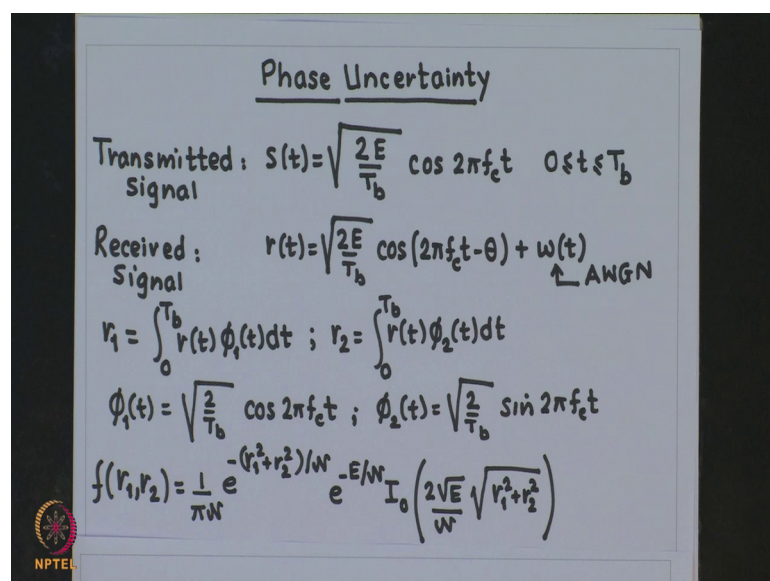 Phase Uncertainty
Transmitted: s(t)=√(2E/T_b) cos 2πf_c t 0≤t≤T_b
Signal
Received: r(t)=√(2E/T_b) cos(2πf_c t-θ) + w(t)
Signal AWGN
r₁ = ∫₀^{T_b} r(t) φ₁(t)dt ; r₂ = ∫₀^{T_b} r(t)φ₂(t)dt
φ₁(t) = √(2/T_b) cos 2πf_c t ; φ₂(t)=√(2/T_b) sin 2πf_c t
f(r₁,r₂) = 1/(πN) e^{-(r₁²+r₂²)/N} e^{-E/N} I₀(2√E/N √(r₁²+r₂²))
NPTEL